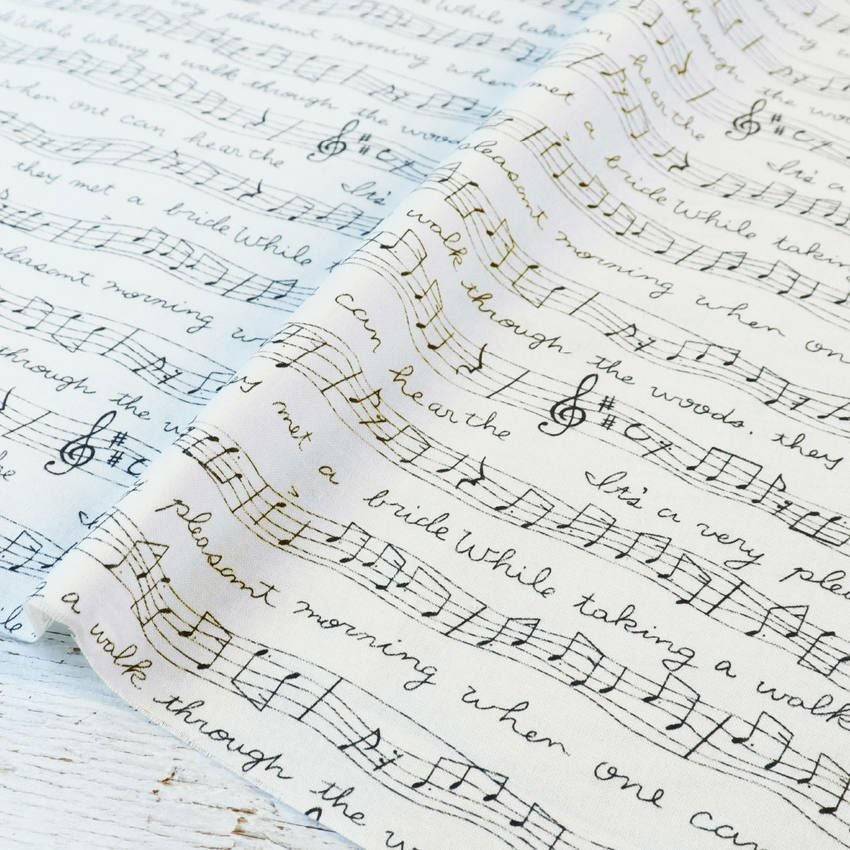 very pleasant morning when
While taking a walk through the woods
when one can hear the
It's
they met a bride While
pleasant morning
through the
through the
hear the
It's a
met a bride While taking
pleasant morning when on
walk through the woods. they
can hear the
It's a very plea
met a bride While taking a walk
pleasant morning when one can
a walk through the w